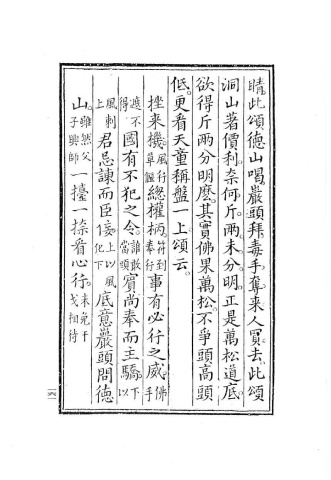 睛。此頌德山喝巖頭拜。毒手奪来人買去。此頌
洞山著價利。奈何斤兩未分明。正是萬松道底。
欲得斤兩分明麽。其實佛果萬松。不爭頭高頭
低。更看天童稱盤一上。頌云。
挫来機。風行草偃緫權柄。符到奉行事有必行之威。佛手
遮不得國有不犯之令。誰敢當頭賓尚奉而主驕。下以
風刺上君忌諫而臣佞。上以風化下底意巖頭問德
山。雖然父子興師一擡一捺看心行。未免干戈相待